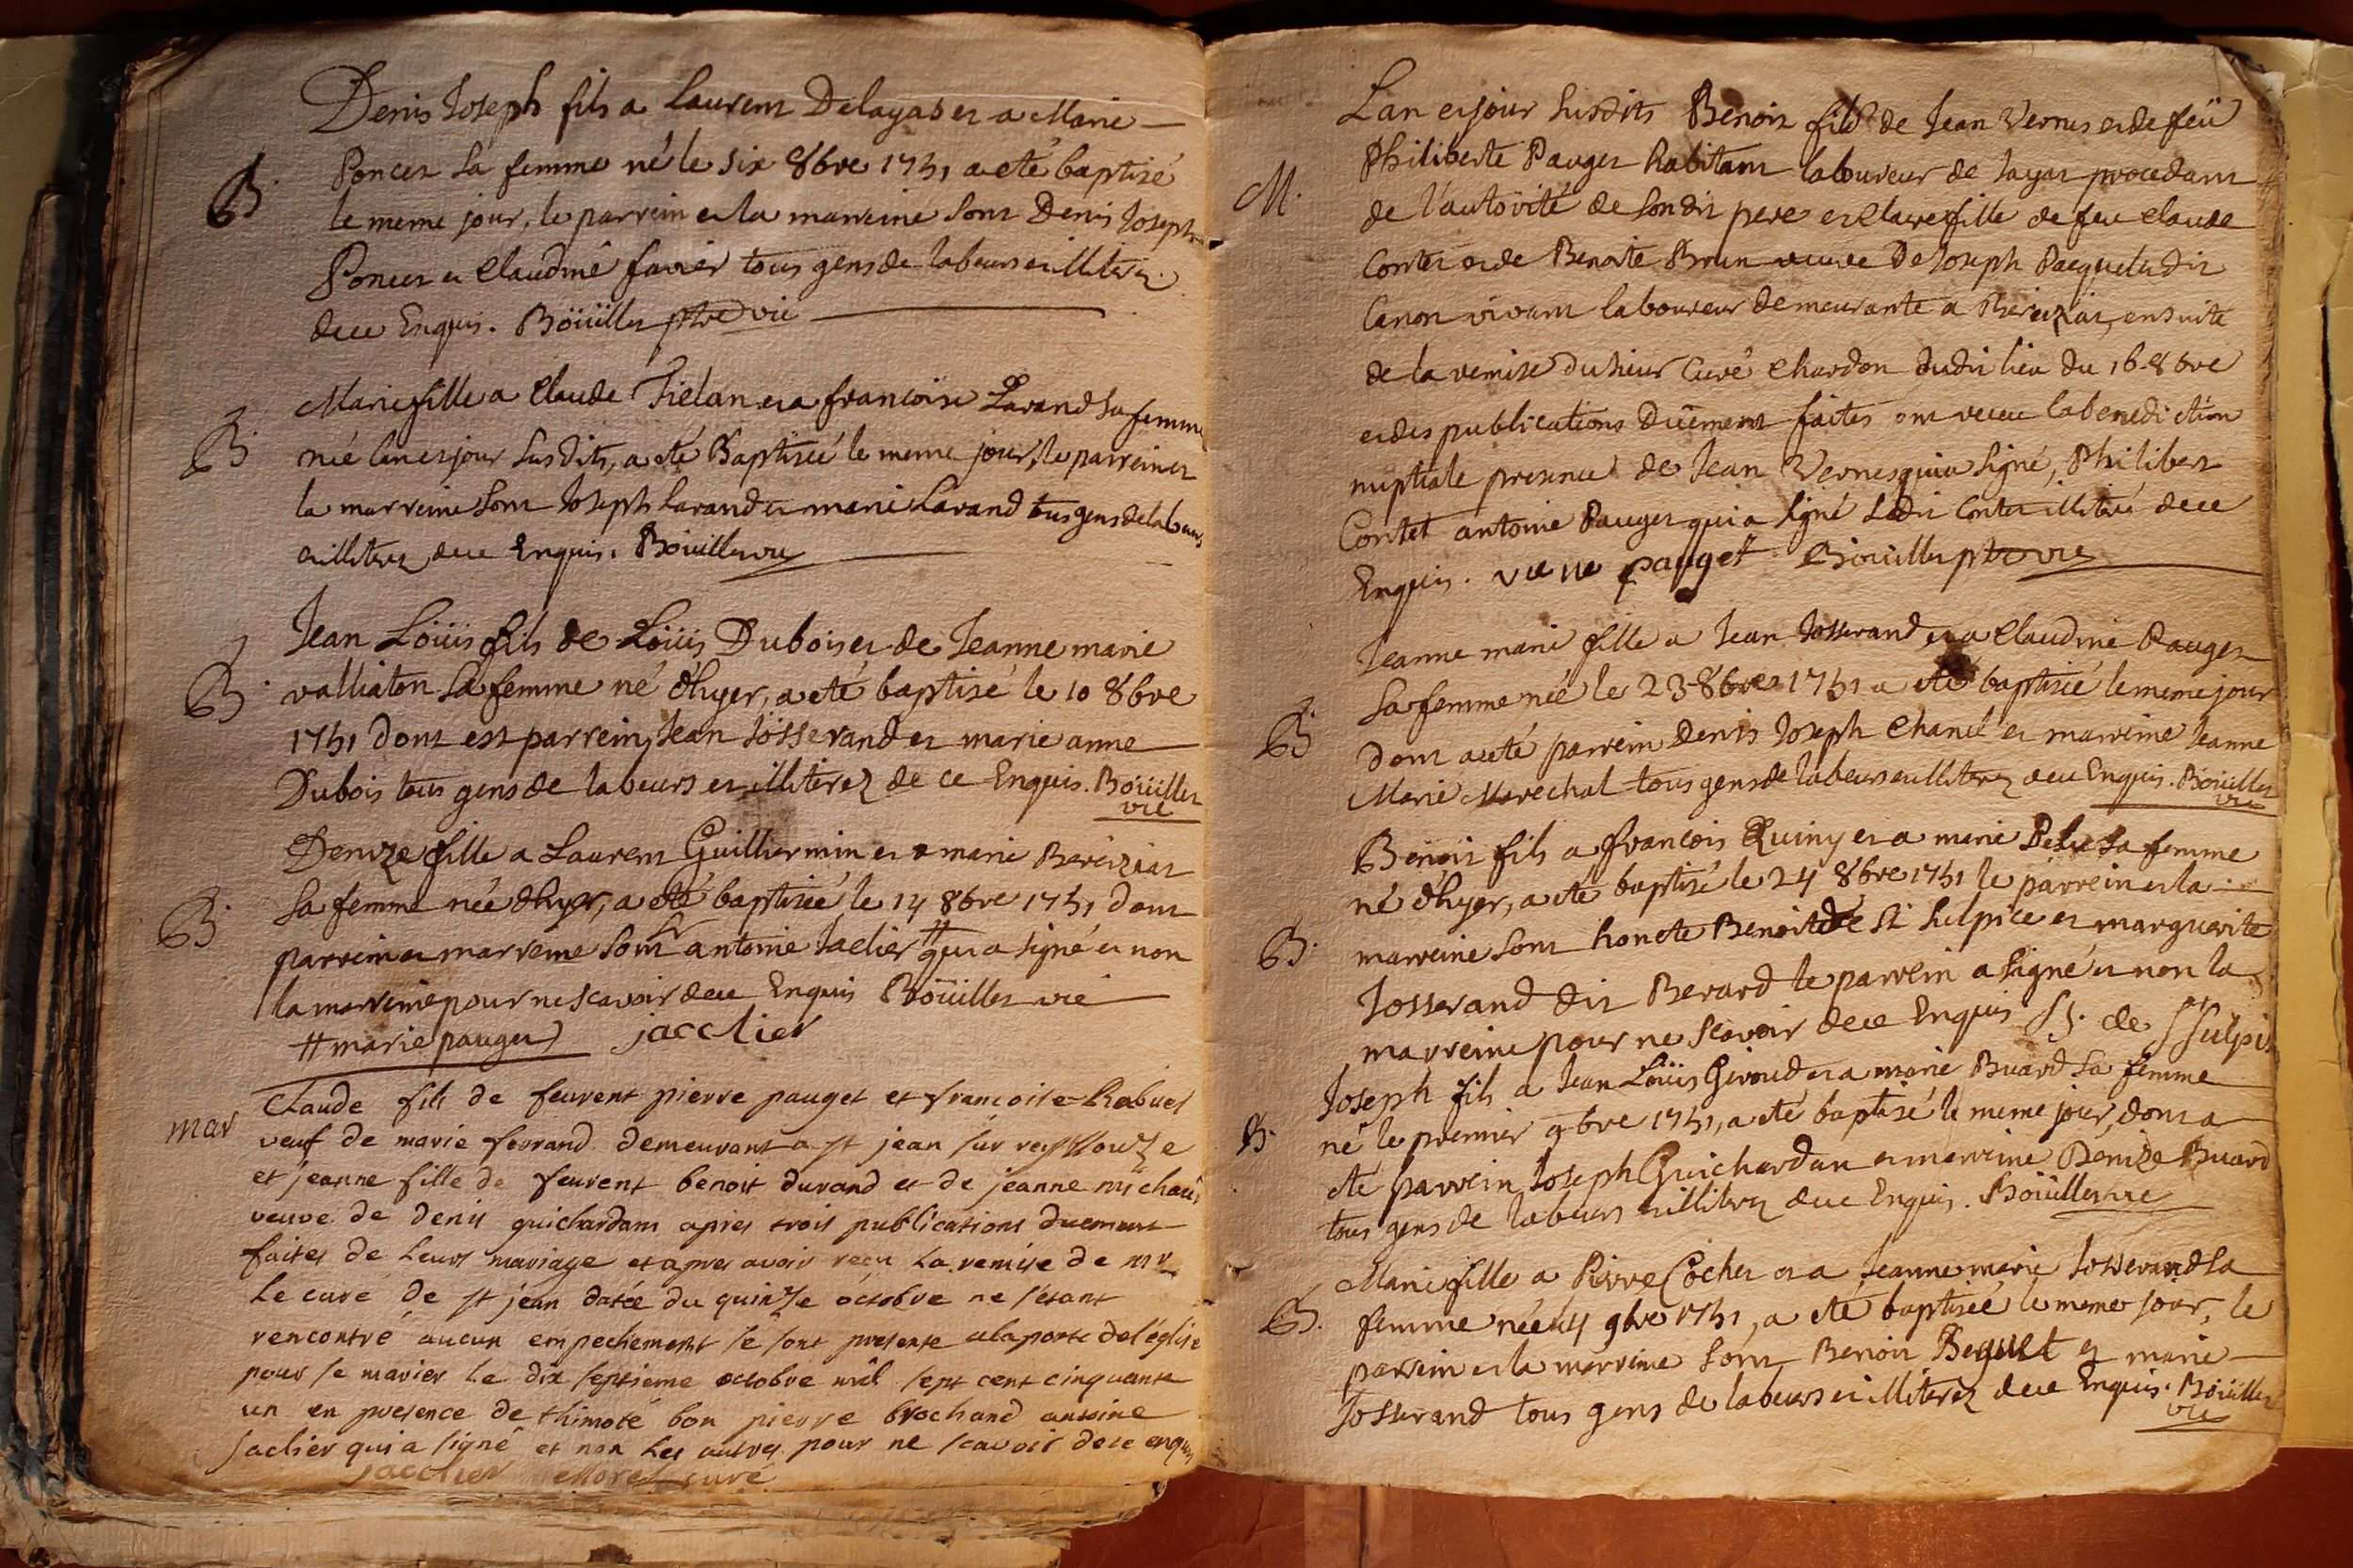 Denis Joseph fils a Laurent Delayat et a Marie
B. Poncet sa femme né le six 8bre 1751 a eté baptisé
le meme jour, le parrein et la marreine sont Denis Joseph
Poncet et Claudine favier tous gens de labeurs et illiterez
de ce Enquis. Boüiller ptre vic
Marie fille a Claude Tielan et a francoise Lavand sa femme
B. née lan et jour susdits, a eté Baptiseé le meme jour, le parrein et
la marreine sont Joseph Lavand et marie Lavand tous gens de labeurs
et illiterez de ce Enquis. Boüiller vic
Jean Loüis fils de Loüis Dubois et de Jeanne marie
B. valliaton sa femme né d'hyer, a eté baptisé le 10 8bre
1751 dont est parrein, Jean Josserand et marie anne
Dubois tous gens de labeurs et illiterez de ce Enquis. Boüiller
vic
Denize fille a Laurent Guilliermin et a marie Bereiziat
B. sa femme née d'hyer, a eté baptiseé le 14 8bre 1751 dont
parrein et marreine sont Sr antoine Jaclier # qui a signé et non
la marreine pour ne scavoir de ce Enquis Boüiller vic
# marie pauget jacclier
Claude fils de feurent pierre pauget et francoise Rabuel
mar veuf de marie ferrand demeurant a st jean sur reyssouze
et jeanne fille de feurent benoit durand et de jeanne michaud
veuve de denis guichardam apres trois publications duement
faites de Leurs mariage et apres avoir reçu La remise de mr
Le curé de st jean datée du quinze octobre ne s'étant
rencontré aucun empechement se sont presenté a la porte de l'église
pour se marier le dix septieme octobre mil sept cent cinquante
un en presence de thimoté bon pierre brochand antoine
jaclier qui a signé et non Les autres pour ne scavoir de ce enquis
jacclier curé
Lan et jour susdits Benoit fils de Jean Vernes et de feüe
Philiberte Pauget habitant laboureur de Jayat procedant
M. de l'autorité de son dit pere et Claire fille de feu Claude
Contet et de Benoite Brun veuve De Joseph Pacquelet dit
Canon vivant laboureur demeurante a Bereiziat, ensuite
de la remise du sieur Curé Chardon dudit lieu du 16 8bre
et des publications Duëment faites ont receu la benediction
nuptiale presence de Jean Vernes qui a signé, Philibert
Contet antoine Pauget qui a signé Ledit Contet illiteré de ce
Enquis. verne pauget Boüiller ptre vic
Jeanne marie fille a Jean Josserand et a Claudine Pauget
B. sa femme née le 23 8bre 1751 a eté baptiseé le meme jour
dont a eté parrein Denis Joseph Chanel et marreine Jeanne
Marie Marechal tous gens de labeurs et illiterez de ce Enquis. Boüiller
vic
Benoit fils a francois Quiny et a marie Pelu sa femme
né d'hyer, a eté baptisé le 24 8bre 1751 le parrein et la
B. marreine sont honete Benoit de St Sulpice et marguerite
Josserand dit Berard le parrein a signé et non la
marreine pour ne scavoir de ce Enquis de st sulpis
Joseph fils a Jean Loüis Giroud et a marie Buard sa femme
B. né le premier 9bre 1751, a eté baptisé le meme jour, dont a
eté parrein Joseph Guichardan et marreine Denize Buard
tous gens de labeurs et illiterez de ce Enquis. Boüiller vic
Marie fille a Pierre Cochet et a Jeanne marie Josserand sa
B. femme née le 4 9bre 1751, a eté baptiseé le meme jour, le
parrein et la marreine sont Benoit Beguet et marie
Josserand tous gens de labeurs et illiterez de ce Enquis. Boüiller
vic